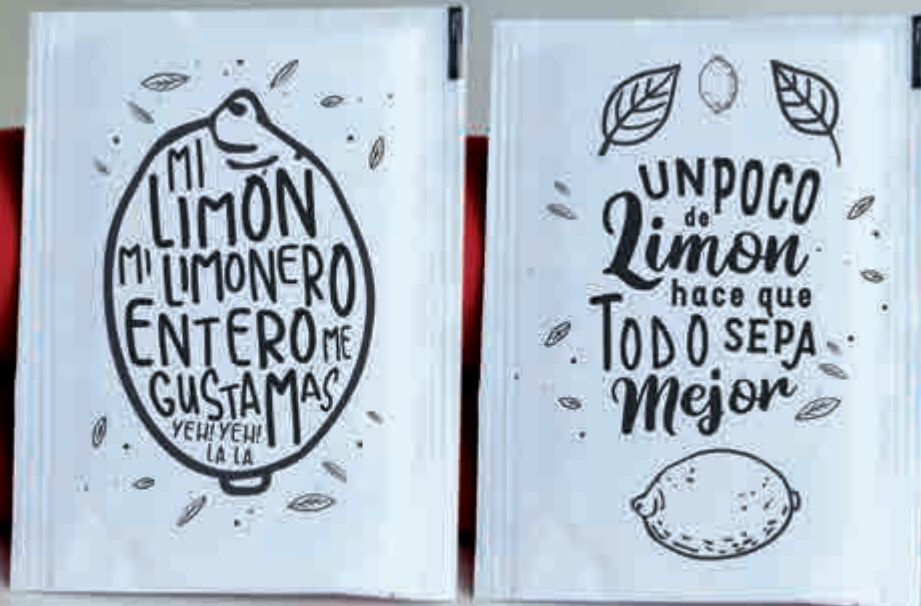 MI
LIMÓN
MI LIMONERO
ENTERO ME
GUSTA MAS
YEH! YEH!
LA LA
UN POCO
de
Limon
hace que
TODO SEPA
Mejor